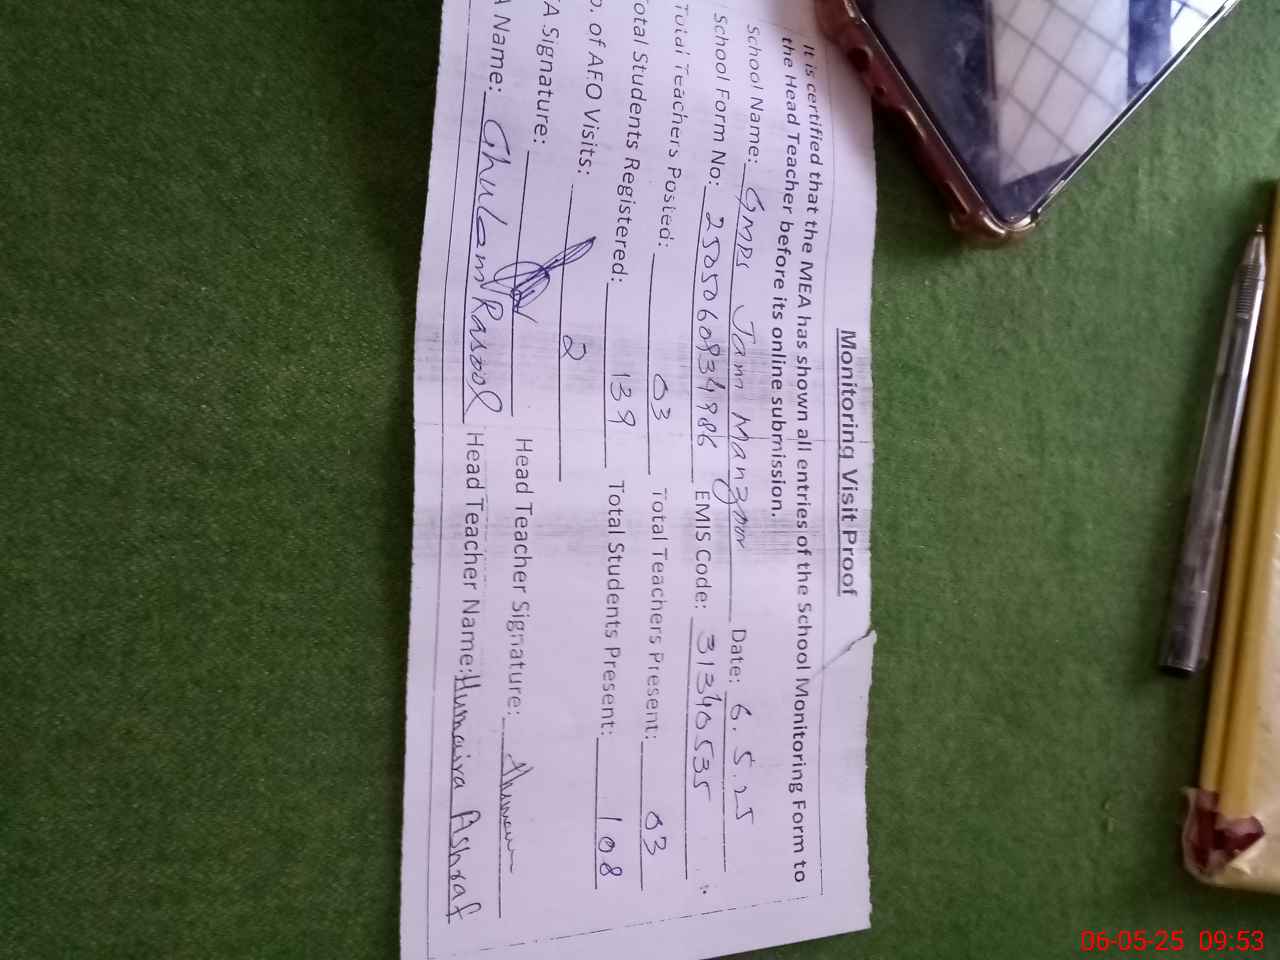 Monitoring Visit Proof
It is certified that the MEA has shown all entries of the School Monitoring Form to
the Head Teacher before its online submission.
School Name: GMPS Jam Manzoor Date: 6.5.25
School Form No: 2505060834986 EMIS Code: 31340535
Total Teachers Posted: 03 Total Teachers Present: 03
otal Students Registered: 139 Total Students Present: 108
o. of AEO Visits: 2
A Signature: Head Teacher Signature:
A Name: Ghulam Rasool Head Teacher Name: Humaira Ashraf
06-05-25 09:53